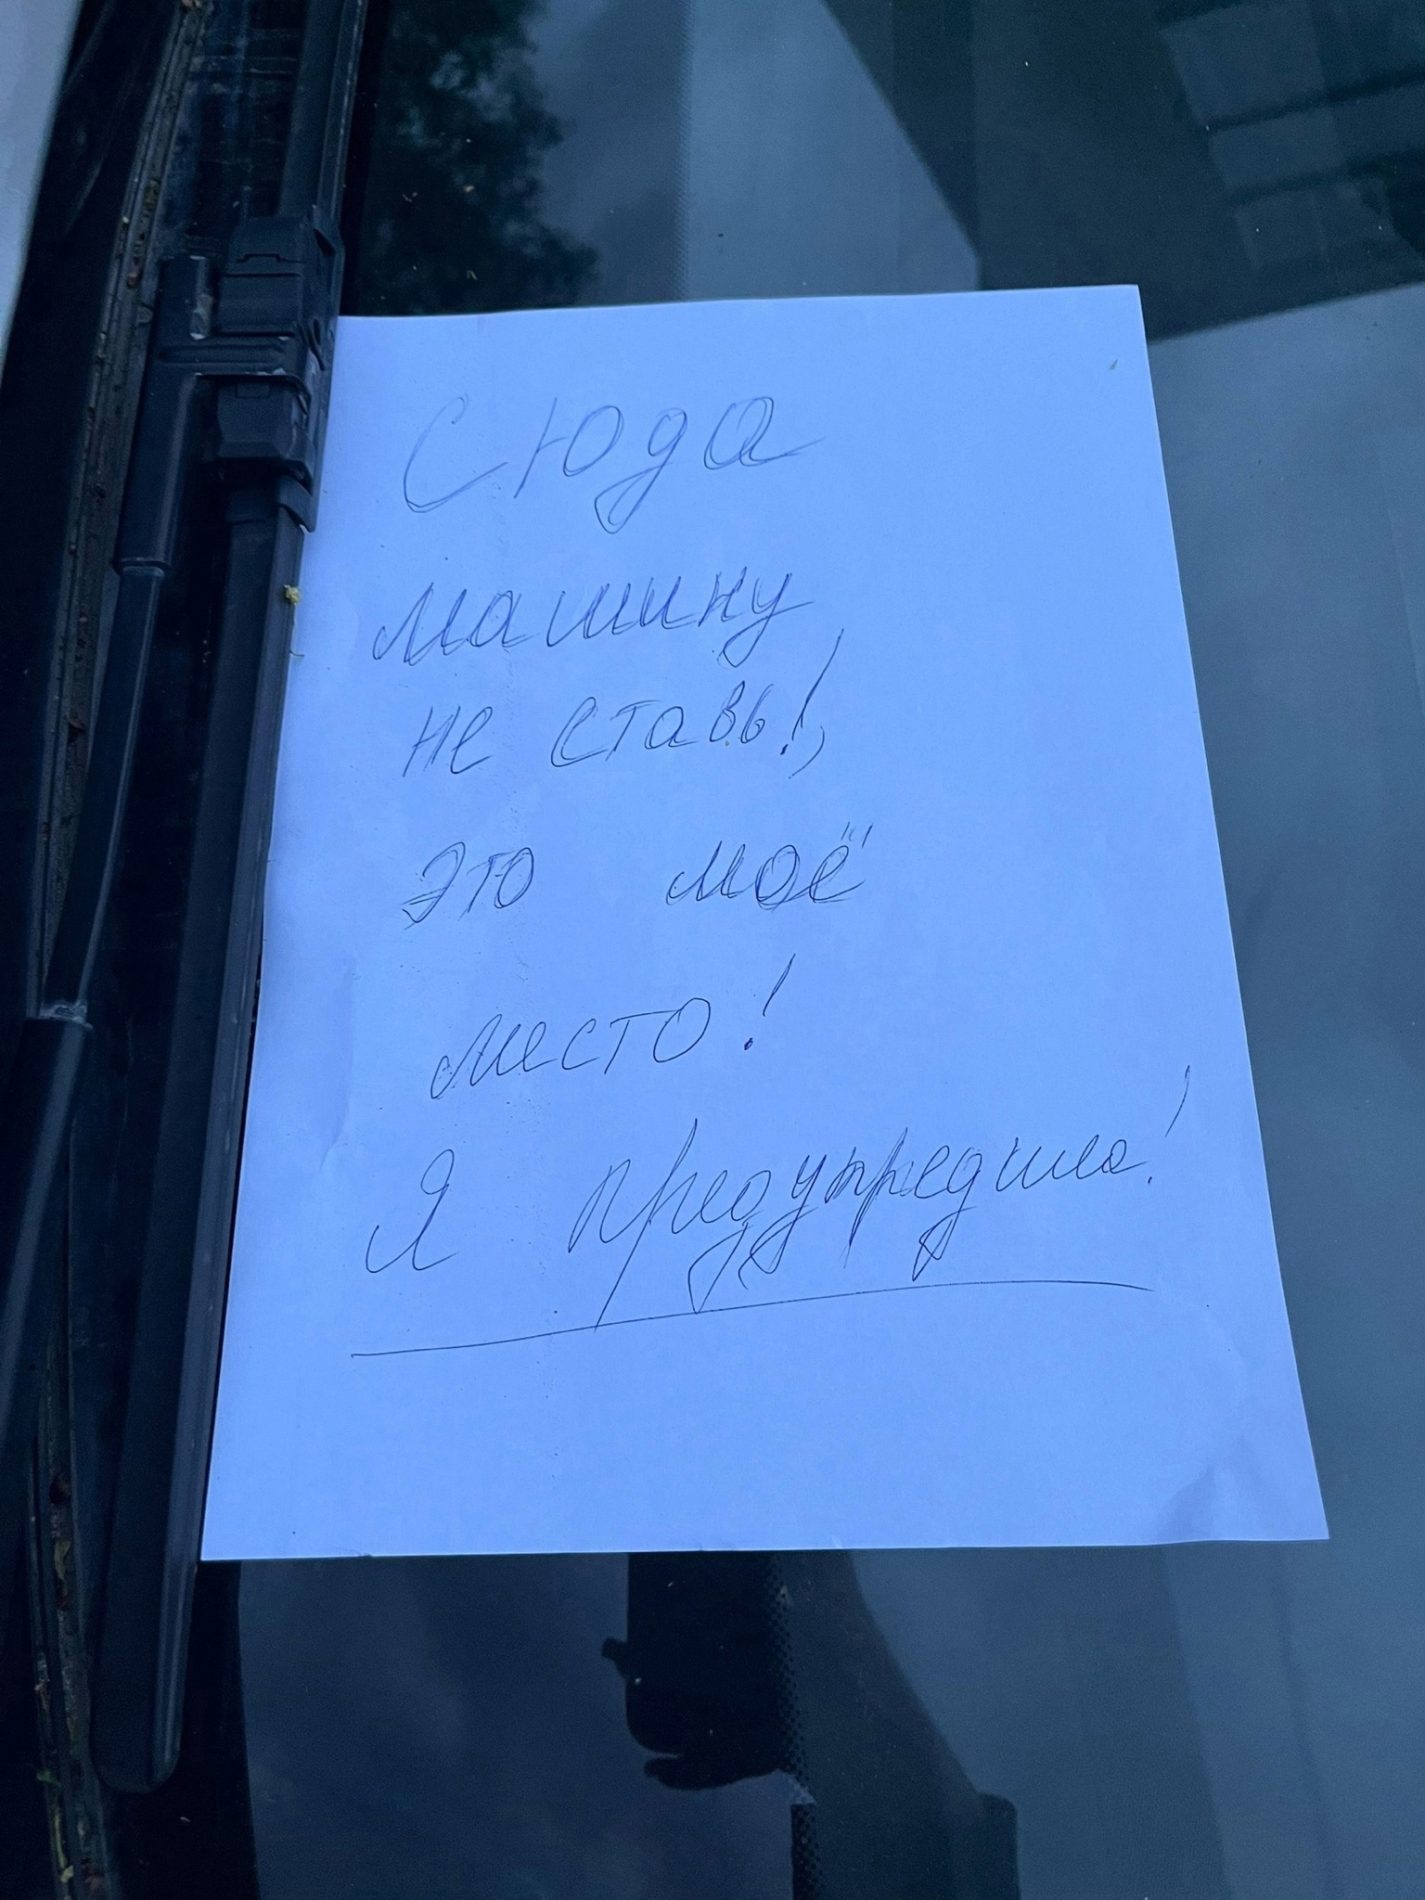 Сюда
машину
не ставь!,
это моё
место!
Я предупредила!